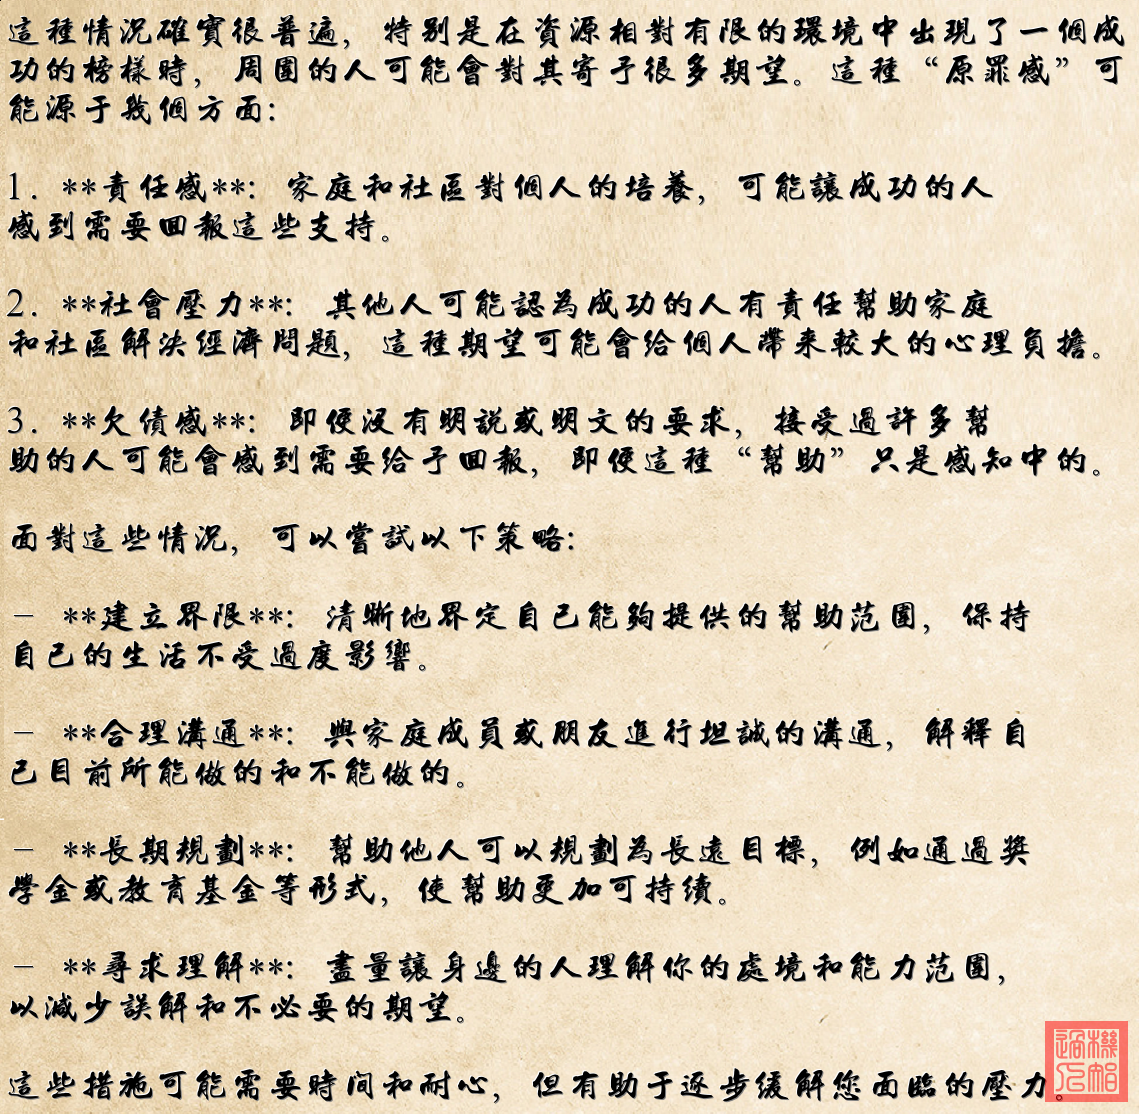 這種情況確實很普遍，特別是在資源相對有限的環境中出現了一個成
功的榜樣時，周圍的人可能會對其寄予很多期望。這種“原罪感”可
能源于幾個方面：
1. **責任感**：家庭和社區對個人的培養，可能讓成功的人
感到需要回報這些支持。
2. **社會壓力**：其他人可能認為成功的人有責任幫助家庭
和社區解決經濟問題，這種期望可能會給個人帶來較大的心理負擔。
3. **欠債感**：即便沒有明說或明文的要求，接受過許多幫
助的人可能會感到需要給予回報，即便這種“幫助”只是感知中的。
面對這些情況，可以嘗試以下策略：
- **建立界限**：清晰地界定自己能夠提供的幫助范圍，保持
自己的生活不受過度影響。
- **合理溝通**：與家庭成員或朋友進行坦誠的溝通，解釋自
己目前所能做的和不能做的。
- **長期規劃**：幫助他人可以規劃為長遠目標，例如通過獎
學金或教育基金等形式，使幫助更加可持續。
- **尋求理解**：盡量讓身邊的人理解你的處境和能力范圍，
以減少誤解和不必要的期望。
這些措施可能需要時间和耐心，但有助于逐步緩解您面臨的壓力。